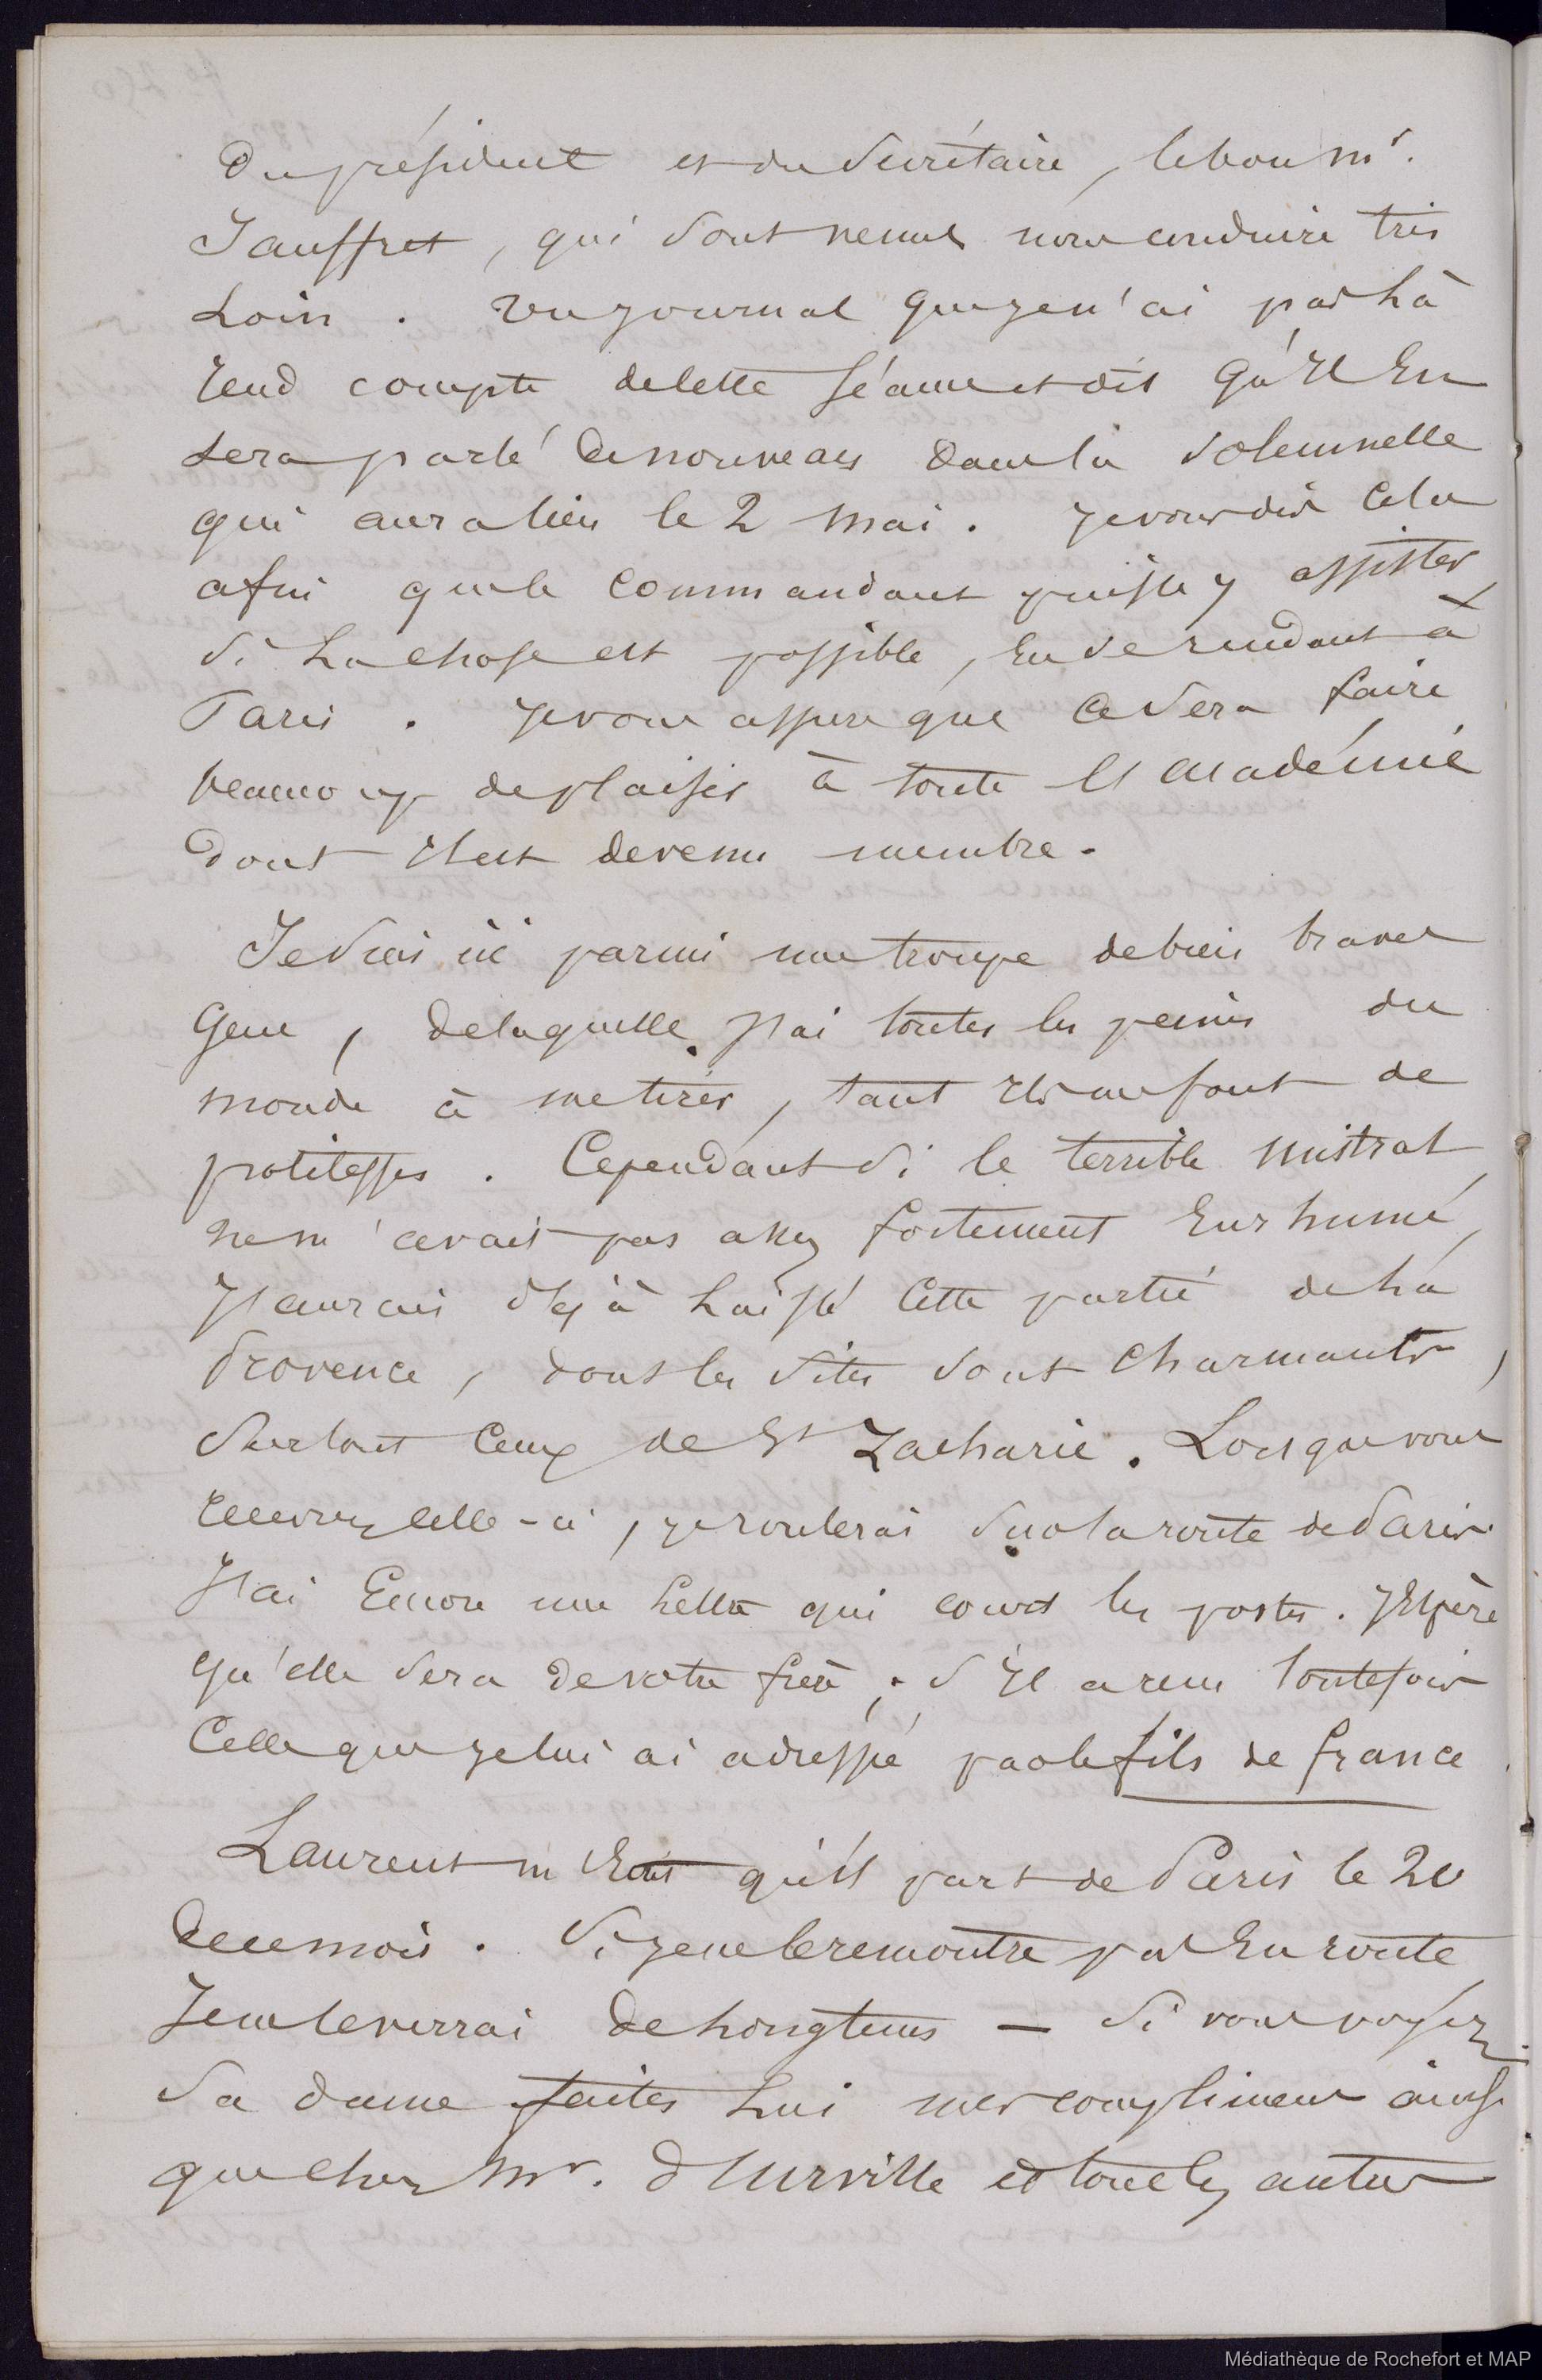 Du président et du Secrétaire, le bon Mr.
Jauffret, qui sont venus nous conduire très
Loin. Un journal que je n'ai pas Là
rend compte de cette séance et dit qu'Il En
sera parlé de nouveau dans la solemnelle
qui aura lieu le 2 mai. Je vous dis Cela
afin que le Commandant puisse y assister,
si La chose est possible, En se rendant à
Paris. Je vous assure que Ce sera faire
beaucoup de plaisir à toute l'académie
dont Il est devenu membre.
Je suis ici parmi une troupe de bien braves
Gens, de laquelle J'ai toutes les peines du
monde à me tirer, tant Ils me font de
politesses. Cependant si le terrible mistral
ne m'avait pas assez fortement Enrhumé,
J'aurais déjà Laissé Cette partie de La
Provence, dont les sites sont Charmants,
Surtout Ceux de St Zacharie. Lorsque vous
recevrez celle-ci, je roulerai sur la route de Paris.
J'ai Encore une Lettre qui court les postes. J'Espère
qu'elle sera de votre frère; s'Il a reçu toutefois
Celle que je lui ai adressé par le fils de france.
Laurent m'Ecrit qu'Il part de Paris le 20
de ce mois. Si je ne le rencontre pas En route
Je ne le verrai de Longtems — Si vous voyez
Sa dame faites Lui mes complimens ainsi
que chez Mr. d'Urville et tous les autres
Médiathèque de Rochefort et MAP